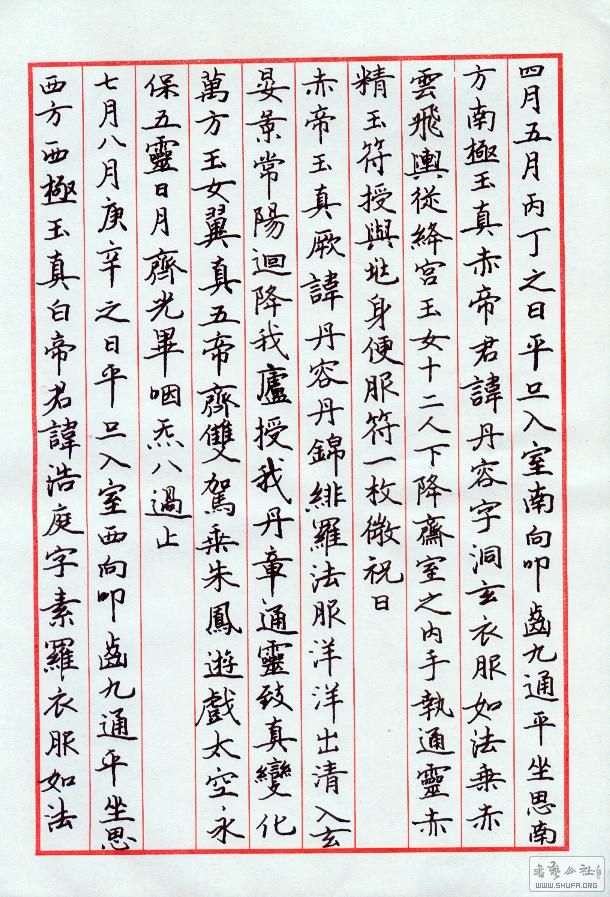 四月五月丙丁之日平旦入室南向叩齒九通平坐思南
方南極玉真赤帝君諱丹容字洞玄衣服如法乗赤
雲飛輿從絳宮玉女十二人下降齋室之内手執通靈赤
精玉符授與兆身便服符一枚微祝曰
赤帝玉真厥諱丹容丹錦緋羅法服洋洋出清入玄
晏景常陽迴降我廬授我丹章通靈致真變化
萬方玉女翼真五帝齊雙駕乗朱鳳遊戲太空永
保五靈日月齊光畢咽炁八過止
七月八月庚辛之日平旦入室西向叩齒九通平坐思
西方西極玉真白帝君諱浩庭字素羅衣服如法
书艺公社
WWW.SHUFA.ORG